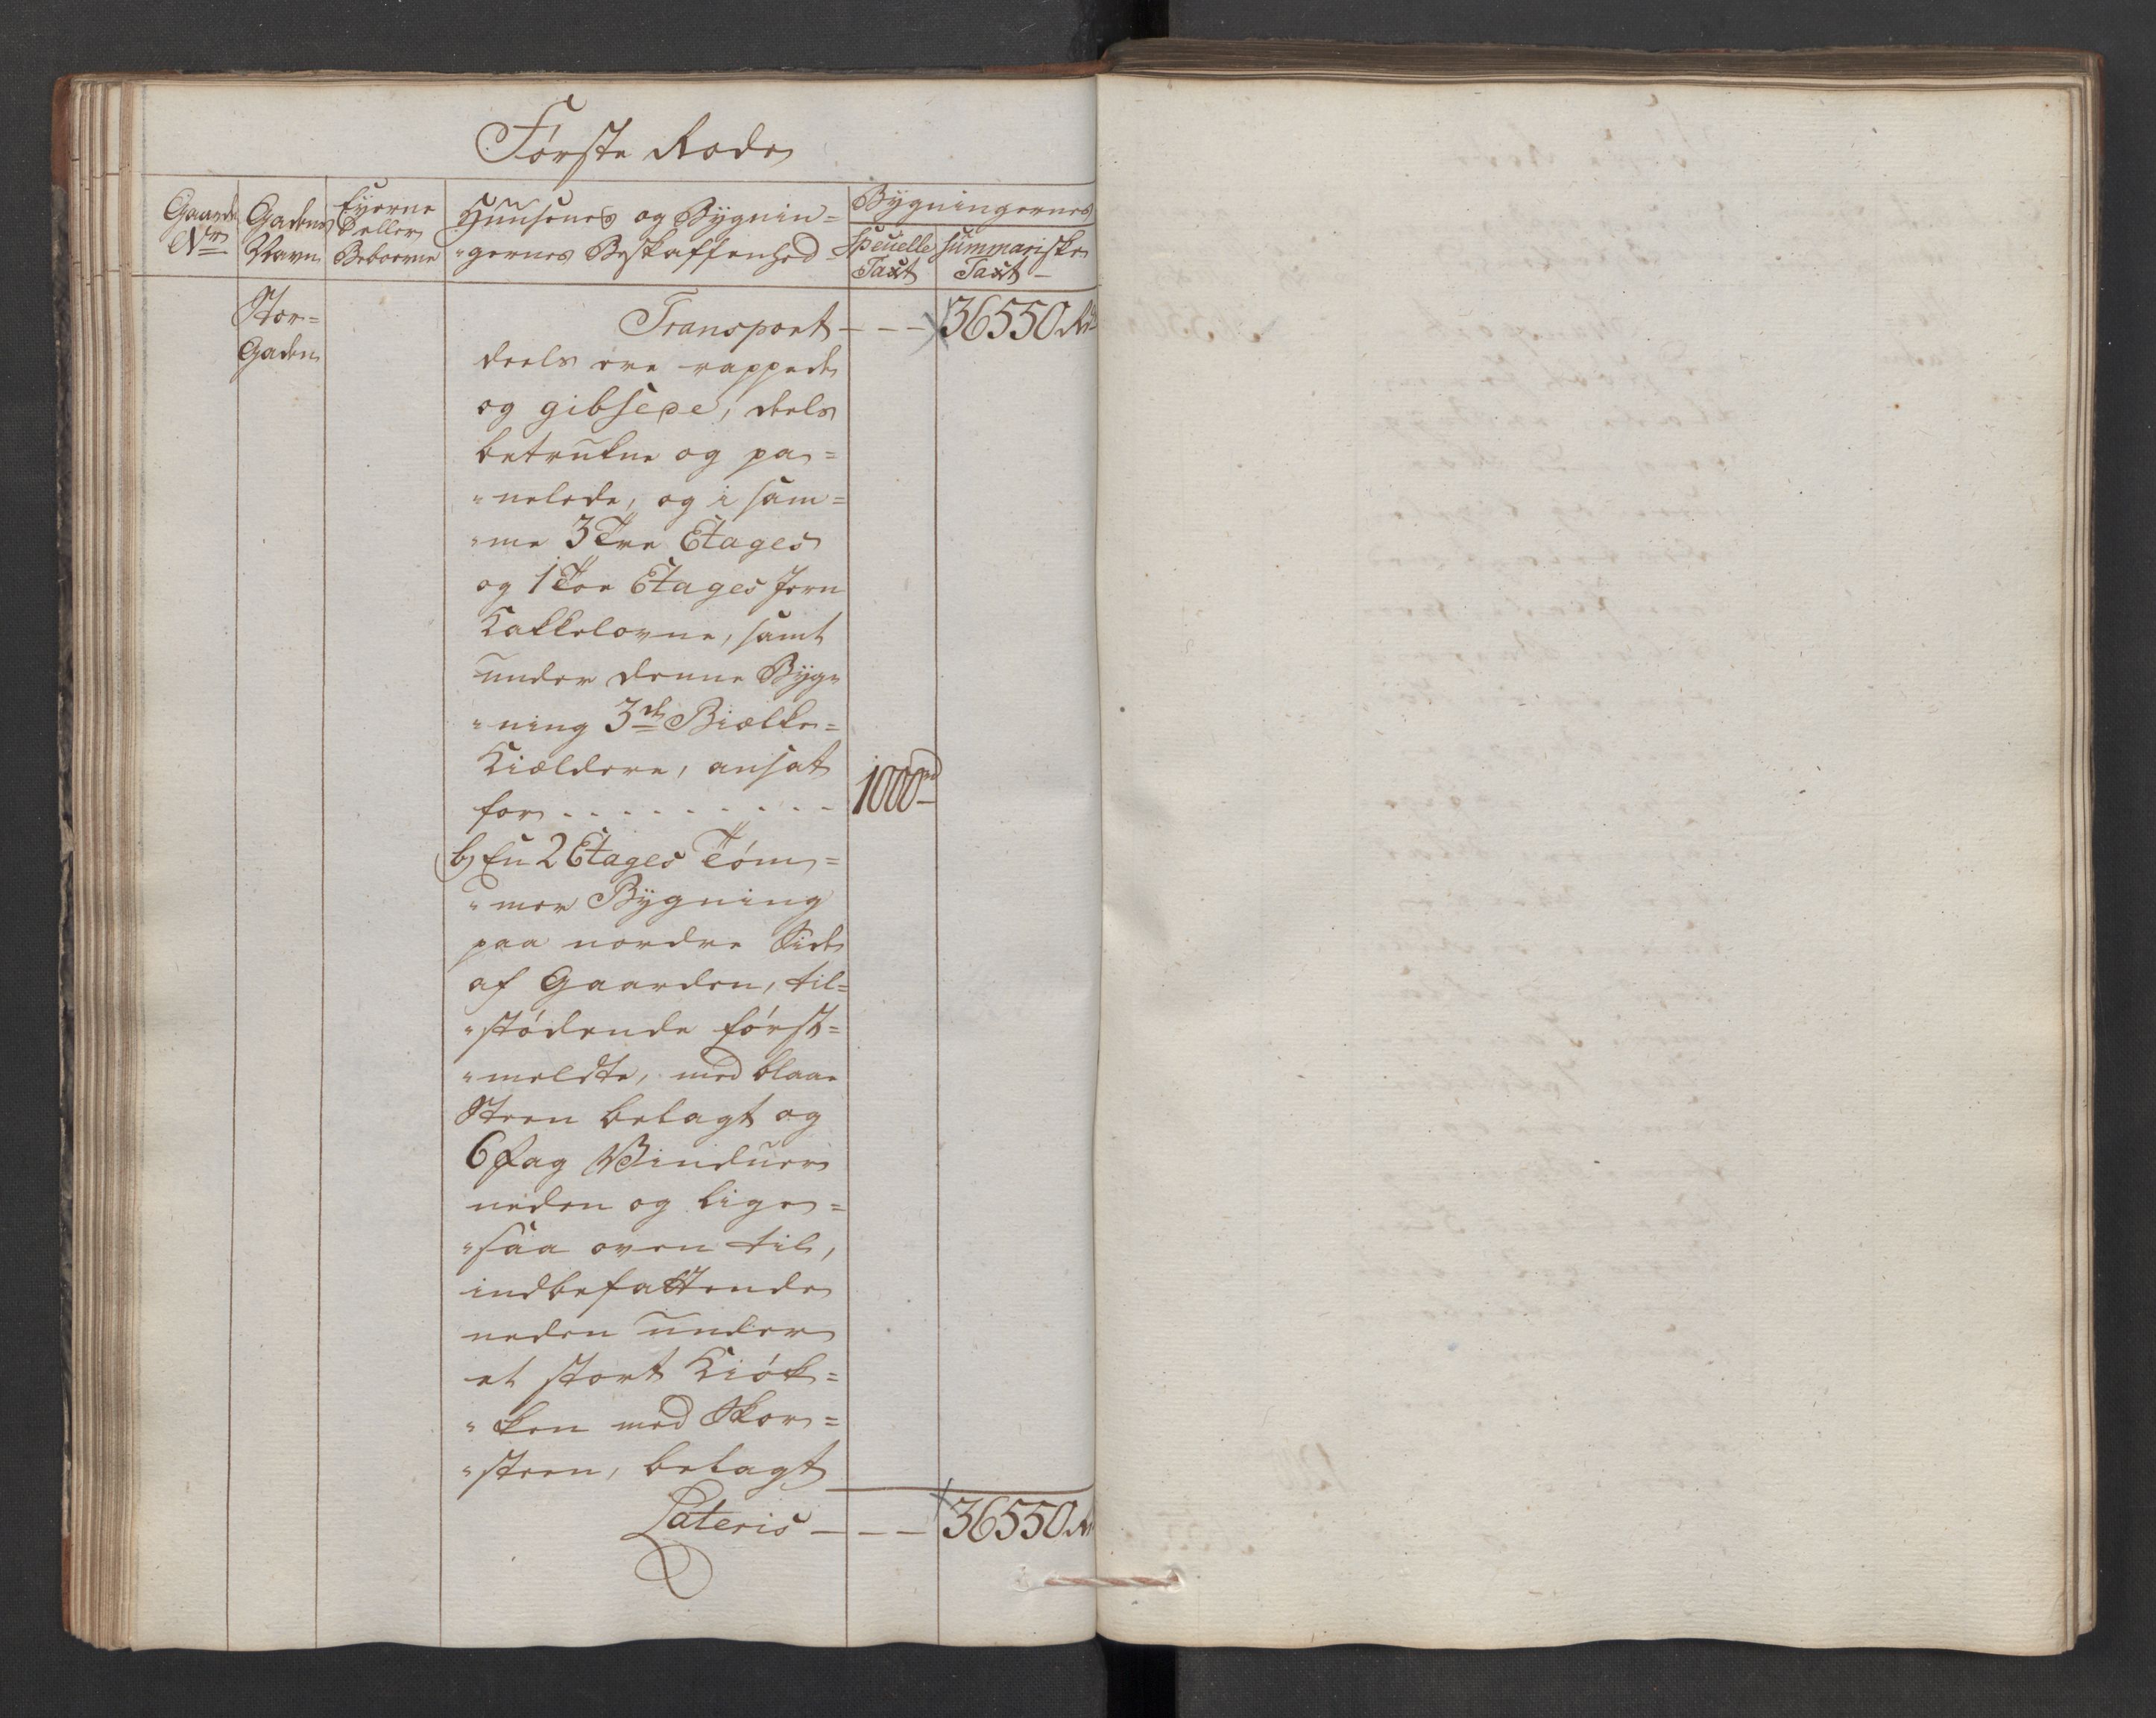 Første Rode
Gaard Nr
Gadens Navn
Eyerne eller Beboerne
Huusenes og Bygnin=
"gernes Beskaffenhed
Bygningernes
Speuelle Taxt
summariske Taxt
Stor=
Gaden
Transport - - - 36550 Rd
deels ere rappede
og gibsede, deels
betrukne og pa=
"nelede, og i sam=
"me 3 Tre Etages
og 1 Toe Etages Jern
Kakkelovne, samt
under denne Byg=
"ning 3de Biælke=
Kieldere, ansat
for . . . . . . . . . 1000 rd
b) En 2 Etages Tøm=
"mer Bygning
paa nordre Side
af Gaarden, til=
"stødende først=
"meldte, med blaae
Steen belagt og
6 Fag Vinduer
neden og lige=
"saa oven til,
indbefattende
neden under
et stort Kiøk=
"ken med Skor=
"steen, belagt
Lateris - - - 36550 Rd